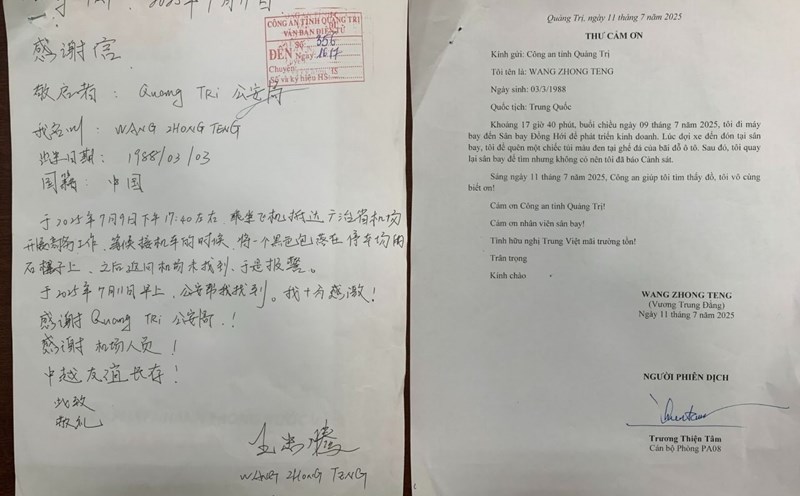 2025年7月11日
感谢信
CÔNG AN TỈNH QUẢNG TRỊ
VĂN BẢN ĐIỆN TỬ
ĐẾN
Số: 356
Ngày
Chuyển:
Số và ký hiệu HS:
敬启者：Quang TRi 公安局
我名叫：WANG ZHONG TENG
出生日期：1988/03/03
国籍：中国
于2025年7月9日下午17:40左右，乘坐飞机抵达广治省机场
开展商务工作，等候接机车的时候，将一个黑色包落在停车场的
石椅子上，之后返回机场未找到，于是报警。
于2025年7月11日早上，公安帮我找到。我十分感激！
感谢 Quang TRi 公安局！
感谢机场人员！
中越友谊长存！
此致
敬礼
王忠腾
WANG ZHONG TENG
Quảng Trị, ngày 11 tháng 7 năm 2025
THƯ CẢM ƠN
Kính gửi: Công an tỉnh Quảng Trị
Tôi tên là: WANG ZHONG TENG
Ngày sinh: 03/3/1988
Quốc tịch: Trung Quốc
Khoảng 17 giờ 40 phút, buổi chiều ngày 09 tháng 7 năm 2025, tôi đi máy
bay đến Sân bay Đồng Hới để phát triển kinh doanh. Lúc đợi xe đến đón tại sân
bay, tôi để quên một chiếc túi màu đen tại ghế đá của bãi đỗ ô tô. Sau đó, tôi quay
lại sân bay để tìm nhưng không có nên tôi đã báo Cảnh sát.
Sáng ngày 11 tháng 7 năm 2025, Công an giúp tôi tìm thấy đồ, tôi vô cùng
biết ơn!
Cảm ơn Công an tỉnh Quảng Trị!
Cảm ơn nhân viên sân bay!
Tình hữu nghị Trung Việt mãi trường tồn!
Trân trọng
Kính chào
WANG ZHONG TENG
(Vương Trung Đằng)
Ngày 11 tháng 7 năm 2025
NGƯỜI PHIÊN DỊCH
Trương Thiện Tâm
Cán bộ Phòng PA08